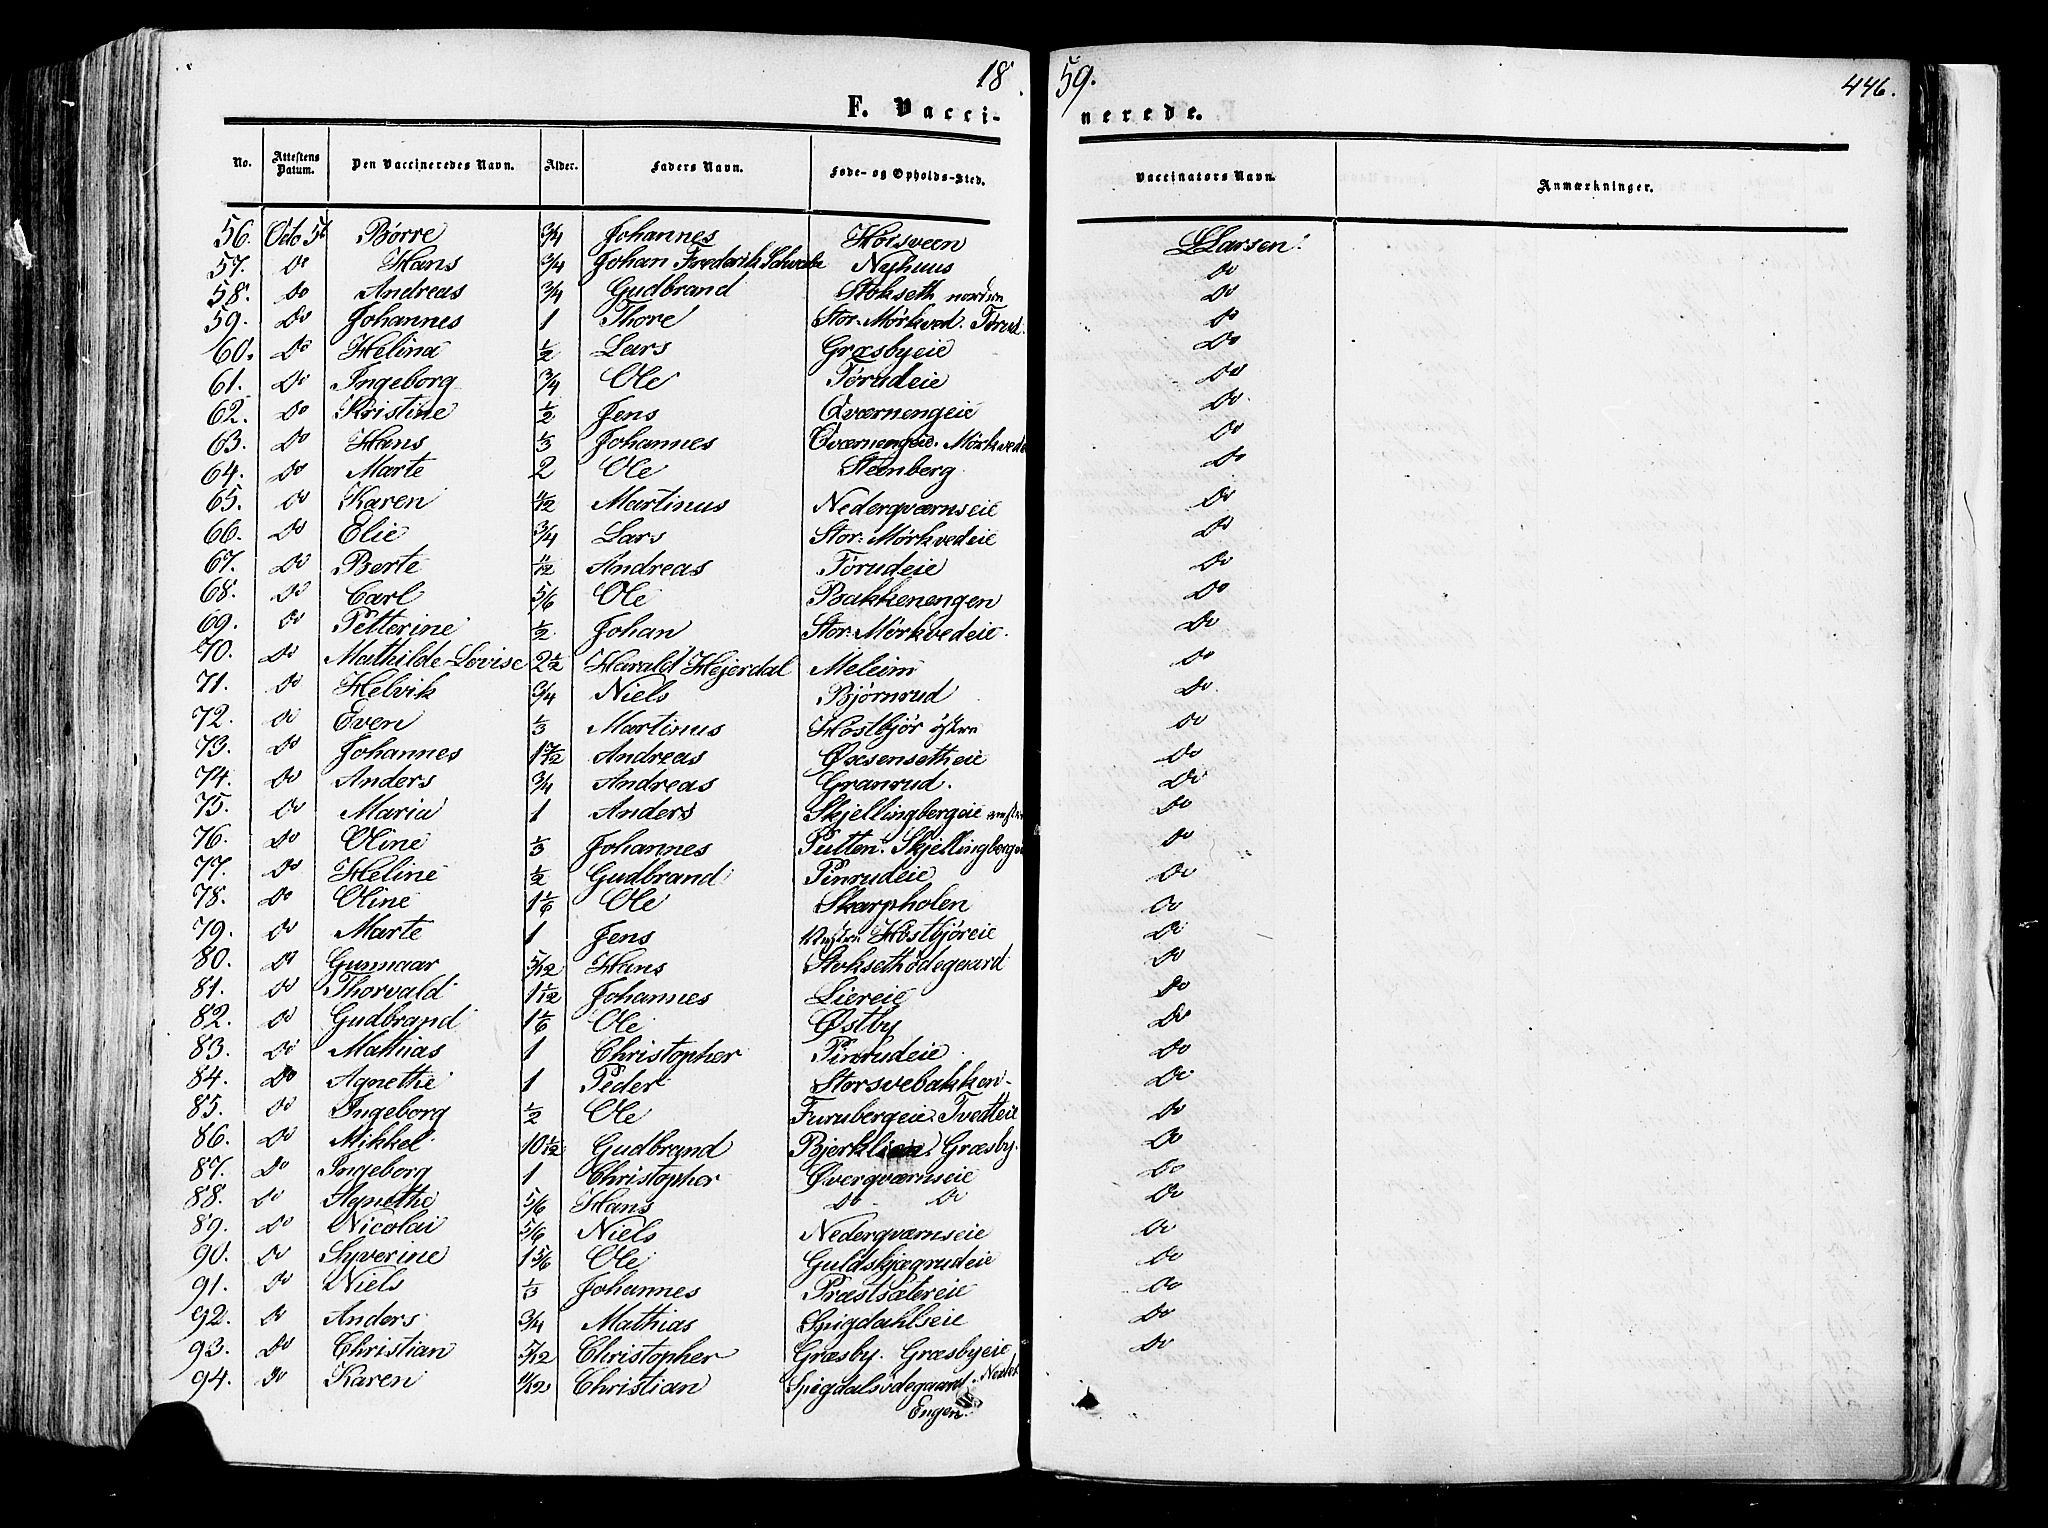 1859.
446.
F. Vaccinerede.
No. Attestens Datum. Den Vaccineredes Navn. Alder. Faders Navn. Føde- og Opholds-Sted. Vaccinators Navn. Anmærkninger.
56. Octo 5te Børre 3/4 Johannes Hoisveen LLarsen.
57. Do Hans 3/4 Johan Frederik Schwabe Nyhuus Do
58. Do Andreas 3/4 Gudbrand Stokseth nordre Do
59. Do Johannes 1 Thore Stor-Mørkved. Tørud. Do
60. Do Helina 1/2 Lars Græsbyeie Do
61. Do Ingeborg 3/4 Ole Tørudeie Do
62. Do Kristine 1/2 Jens Qværnengeie Do
63. Do Hans 1/3 Johannes Qværnengeie. Mørkvede Do
64. Do Marte 2 Ole Steenberg Do
65. Do Karen 11/12 Martinus Nederqværnseie Do
66. Do Elie 3/4 Lars Stor-Mørkvedeie Do
67. Do Berte 11/12 Andreas Tørudeie Do
68. Do Carl 5/6 Ole Bakkenengen Do
69. Do Petterine 1/2 Johan Stor-Mørkvedeie. Do
70. Do Mathilde-Lovise 2 1/2 Harald Hejerdal Meleim Do
71. Do Helvik 3/4 Niels Bjørnrud Do
72. Do Even 1/3 Martinus Høstbjør østre Do
73. Do Johannes 1 7/12 Andreas Øxensetheie Do
74. Do Anders 3/4 Andreas Granrud. Do
75. Do Maria 1 Anders Skjellingbergeie Do
76. Do Oline 1/3 Johannes Putten. Skjellingberge Do
77. Do Heline 1/2 Gudbrand Pinrudeie Do
78. Do Oline 1 1/6 Ole Skarpholen Do
79. Do Marte 1 Jens Vestre Høstbjøreie Do
80. Do Gunnaar 5/12 Hans Stoksethødegaard Do
81. Do Thorvald 1 1/12 Johannes Liereie Do
82. Do Gudbrand 1 1/6 Ole Østby Do
83. Do Mathias 1 Christopher Pinrudeie Do
84. Do Agnethe 1 Peder Storsvebakken- Do
85. Do Ingeborg 1/2 Ole Furubergeie. Tvedteie Do
86. Do Mikkel 10 1/2 Gudbrand Bjerklien. Græsby. Do
87. Do Ingeborg 1 Christopher Øverqværnseie Do
88. Do Agnethe 5/6 Hans Do Do Do
89. Do Nicolai 5/6 Niels Nederqværnseie Do
90. Do Syverine 1 5/6 Ole Guldskjægrudeie Do
91. Do Niels 1/3 Johannes Præstsætereie Do
92. Do Anders 3/4 Mathias Spigdahlseie Do
93. Do Christian 5/12 Christopher Græsby. Græsbyeie Do
94. Do Karen 11/12 Christian Spigdalsødegaard.
Engen.